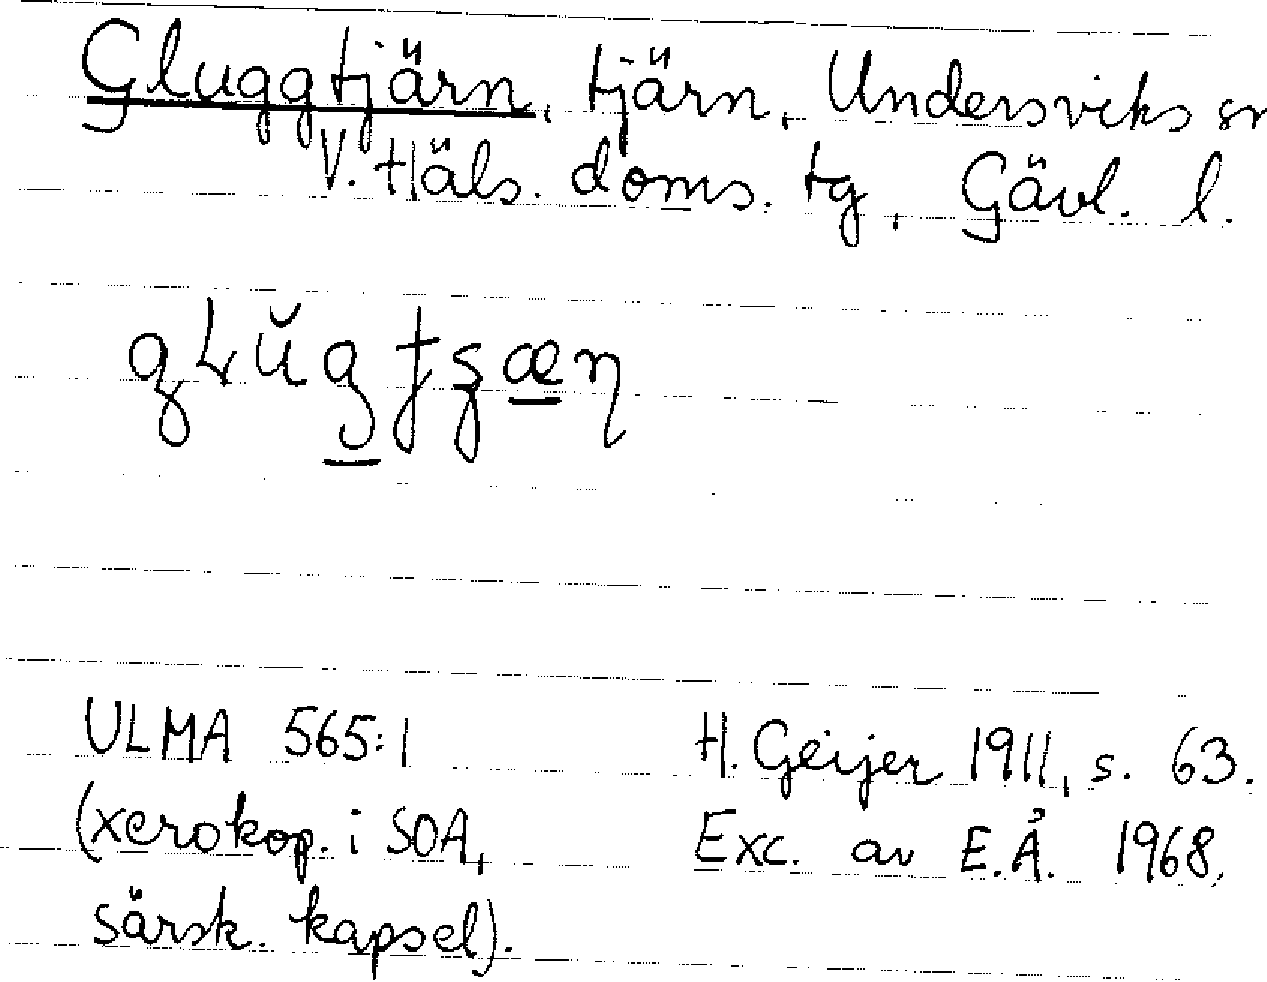 Gluggtjärn, tjärn, Undersviks sn
V. Häls. doms. tg, Gävl. l.
ULMA 565:1
(xerokop. i SOA,
särsk. kapsel).
H. Geijer 1911, s. 63.
Exc. av E.Å. 1968.